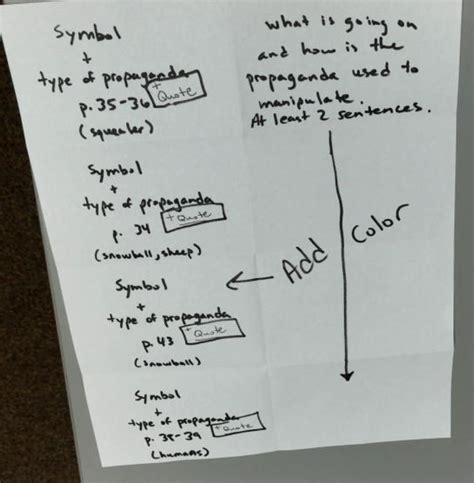 Symbol
+
type of propaganda
+ Quote
p. 35-36
(squealer)
Symbol
+
type of propaganda
+ Quote
p. 34
(snowball, sheep)
Symbol
+
type of propaganda
+ Quote
p. 43
(snowball)
Symbol
+
type of propaganda
+ Quote
p. 38-39
(humans)
what is going on
and how is the
propaganda used to
manipulate.
At least 2 sentences.
← Add Color